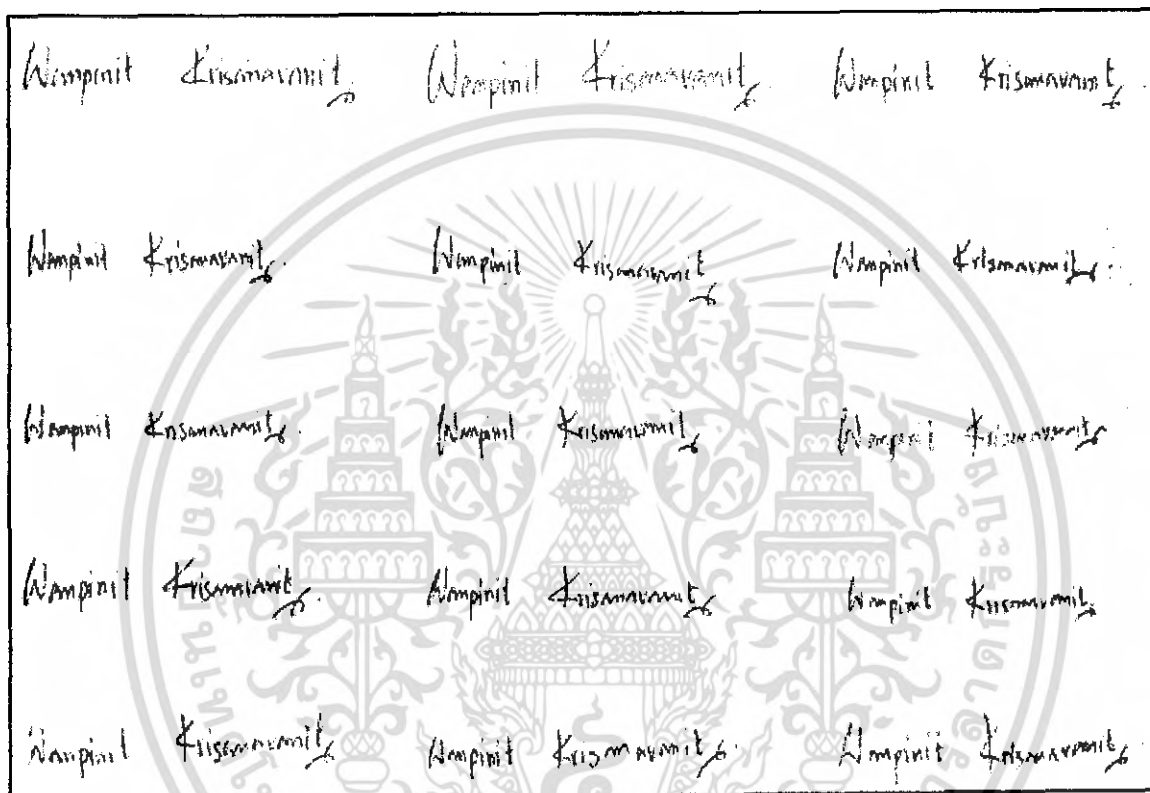 Wanpinit Krismavanit Wanpinit Krismavanit Wanpinit Krismavanit
Wanpinit Krismavanit Wanpinit Krismavanit Wanpinit Krismavanit
Wanpinit Krismavanit Wanpinit Krismavanit Wanpinit Krismavanit
Wanpinit Krismavanit Wanpinit Krismavanit Wanpinit Krismavanit
Wanpinit Krismavanit Wanpinit Krismavanit Wanpinit Krismavanit